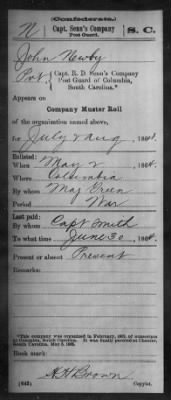 (Confederate.)
N Capt. Senn's Company Post Guard. S. C.
John Newby
Pvt., Capt. R. D. Senn's Company Post Guard of Columbia, South Carolina.*
Appears on
Company Muster Roll
of the organization named above,
for July & Aug, 1864.
Enlisted:
When May 2, 1864.
Where Columbia
By whom Maj Green
Period War
Last paid:
By whom Capt Smith
To what time June 30, 1864.
Present or absent Present
Remarks:
*This company was organized in February,
at Columbia, South Carolina. It was finally paroled at Chester,
South Carolina, May 5, 1865.
Book mark:
A H Brown
(642) Copyist.